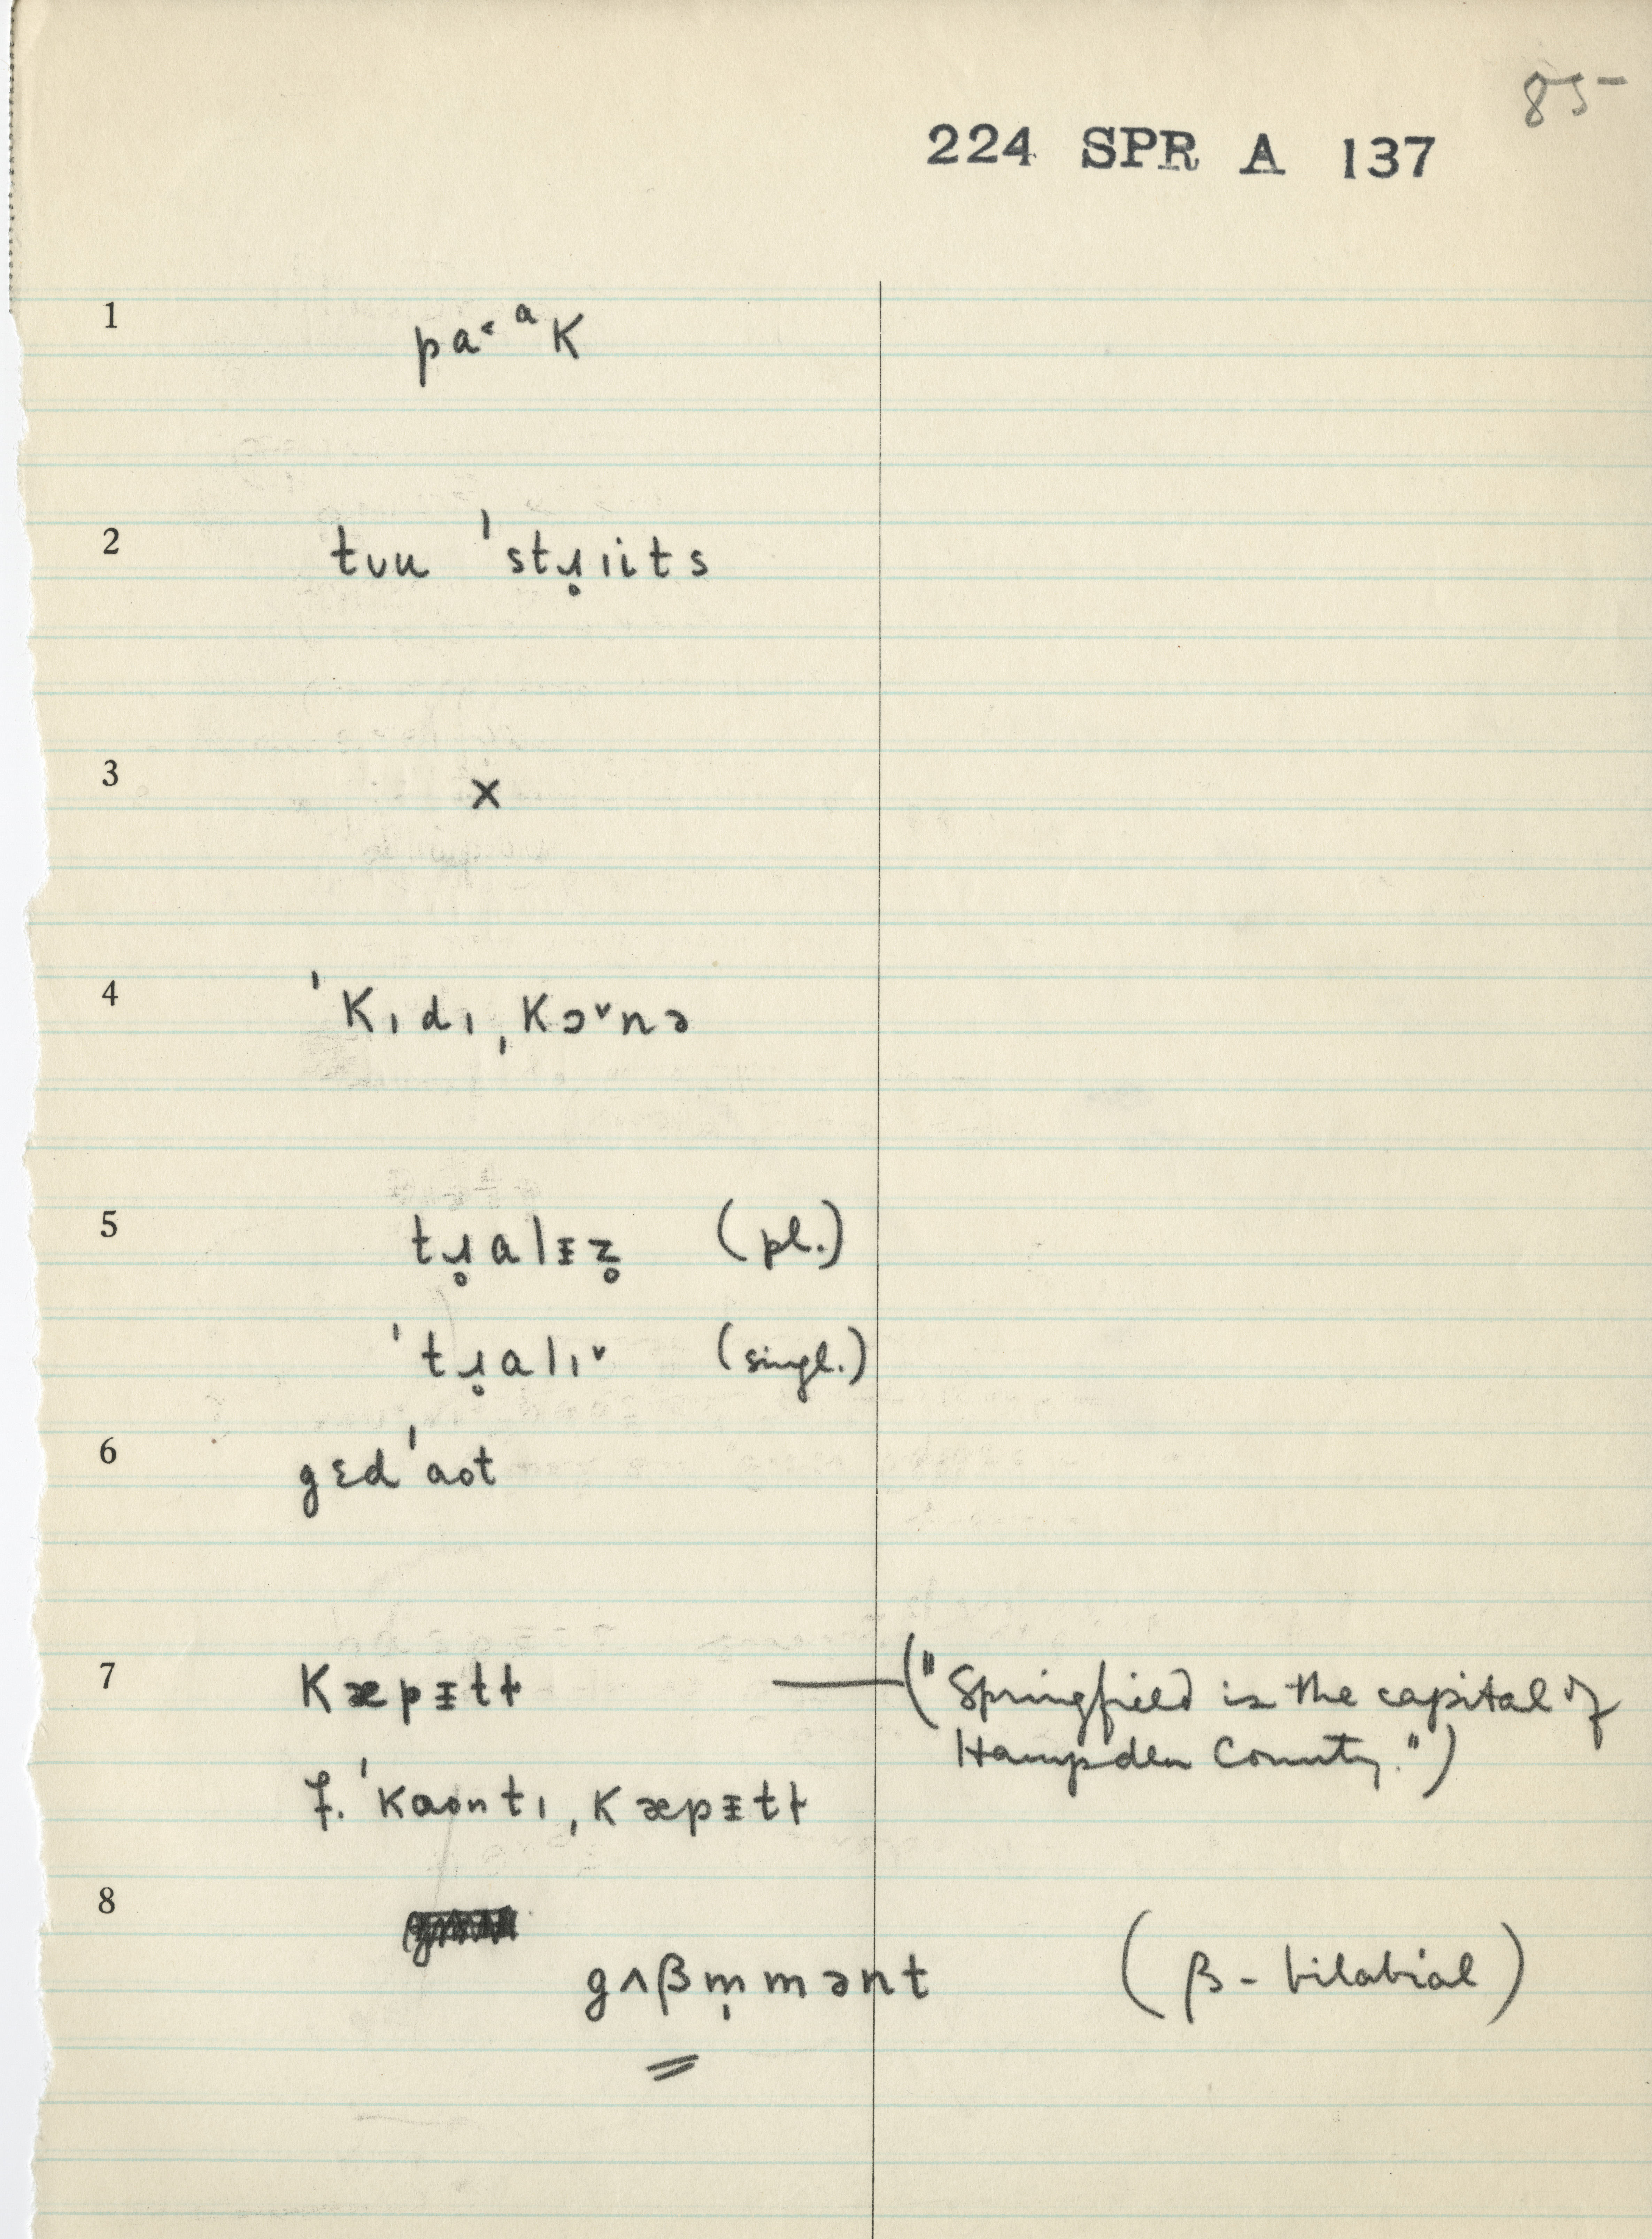 85-
224 SPR A 137
1 pa˂ ᵃK
2 tʊu ˈstɹ̥ɪits
3 x
4 ˈKɪdɪˌKɔ˅nə
5 tɹ̥alᵻz̥ (pl.)
ˈtɹ̥alɪ˅ (singl.)
6 gɛdˈaot
7 Kæpᵻtɫ — ("Springfield is the capital of
Hampden County.")
f. ˈKaontɪˌKæpᵻtɫ
8
gʌβm̩mənt (β - bilabial)